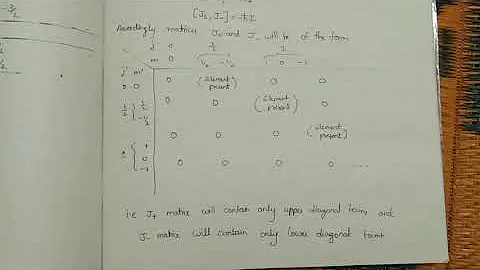 -3/2
[Jz, J-] = -ħ
Accordingly matrices J+ and J- will be of the form
j 0 1/2 1
m 0 1/2 -1/2 1 0 -1
j' m'
0 0 0 (Element present) 0 0
1/2 { 1/2 -1/2 0 0 (Element present) 0
1 0 0 0 (Element present)
0
-1 0 0 0 0 .....
i.e J+ matrix will contain only upper diagonal terms and
J- matrix will contain only lower diagonal terms